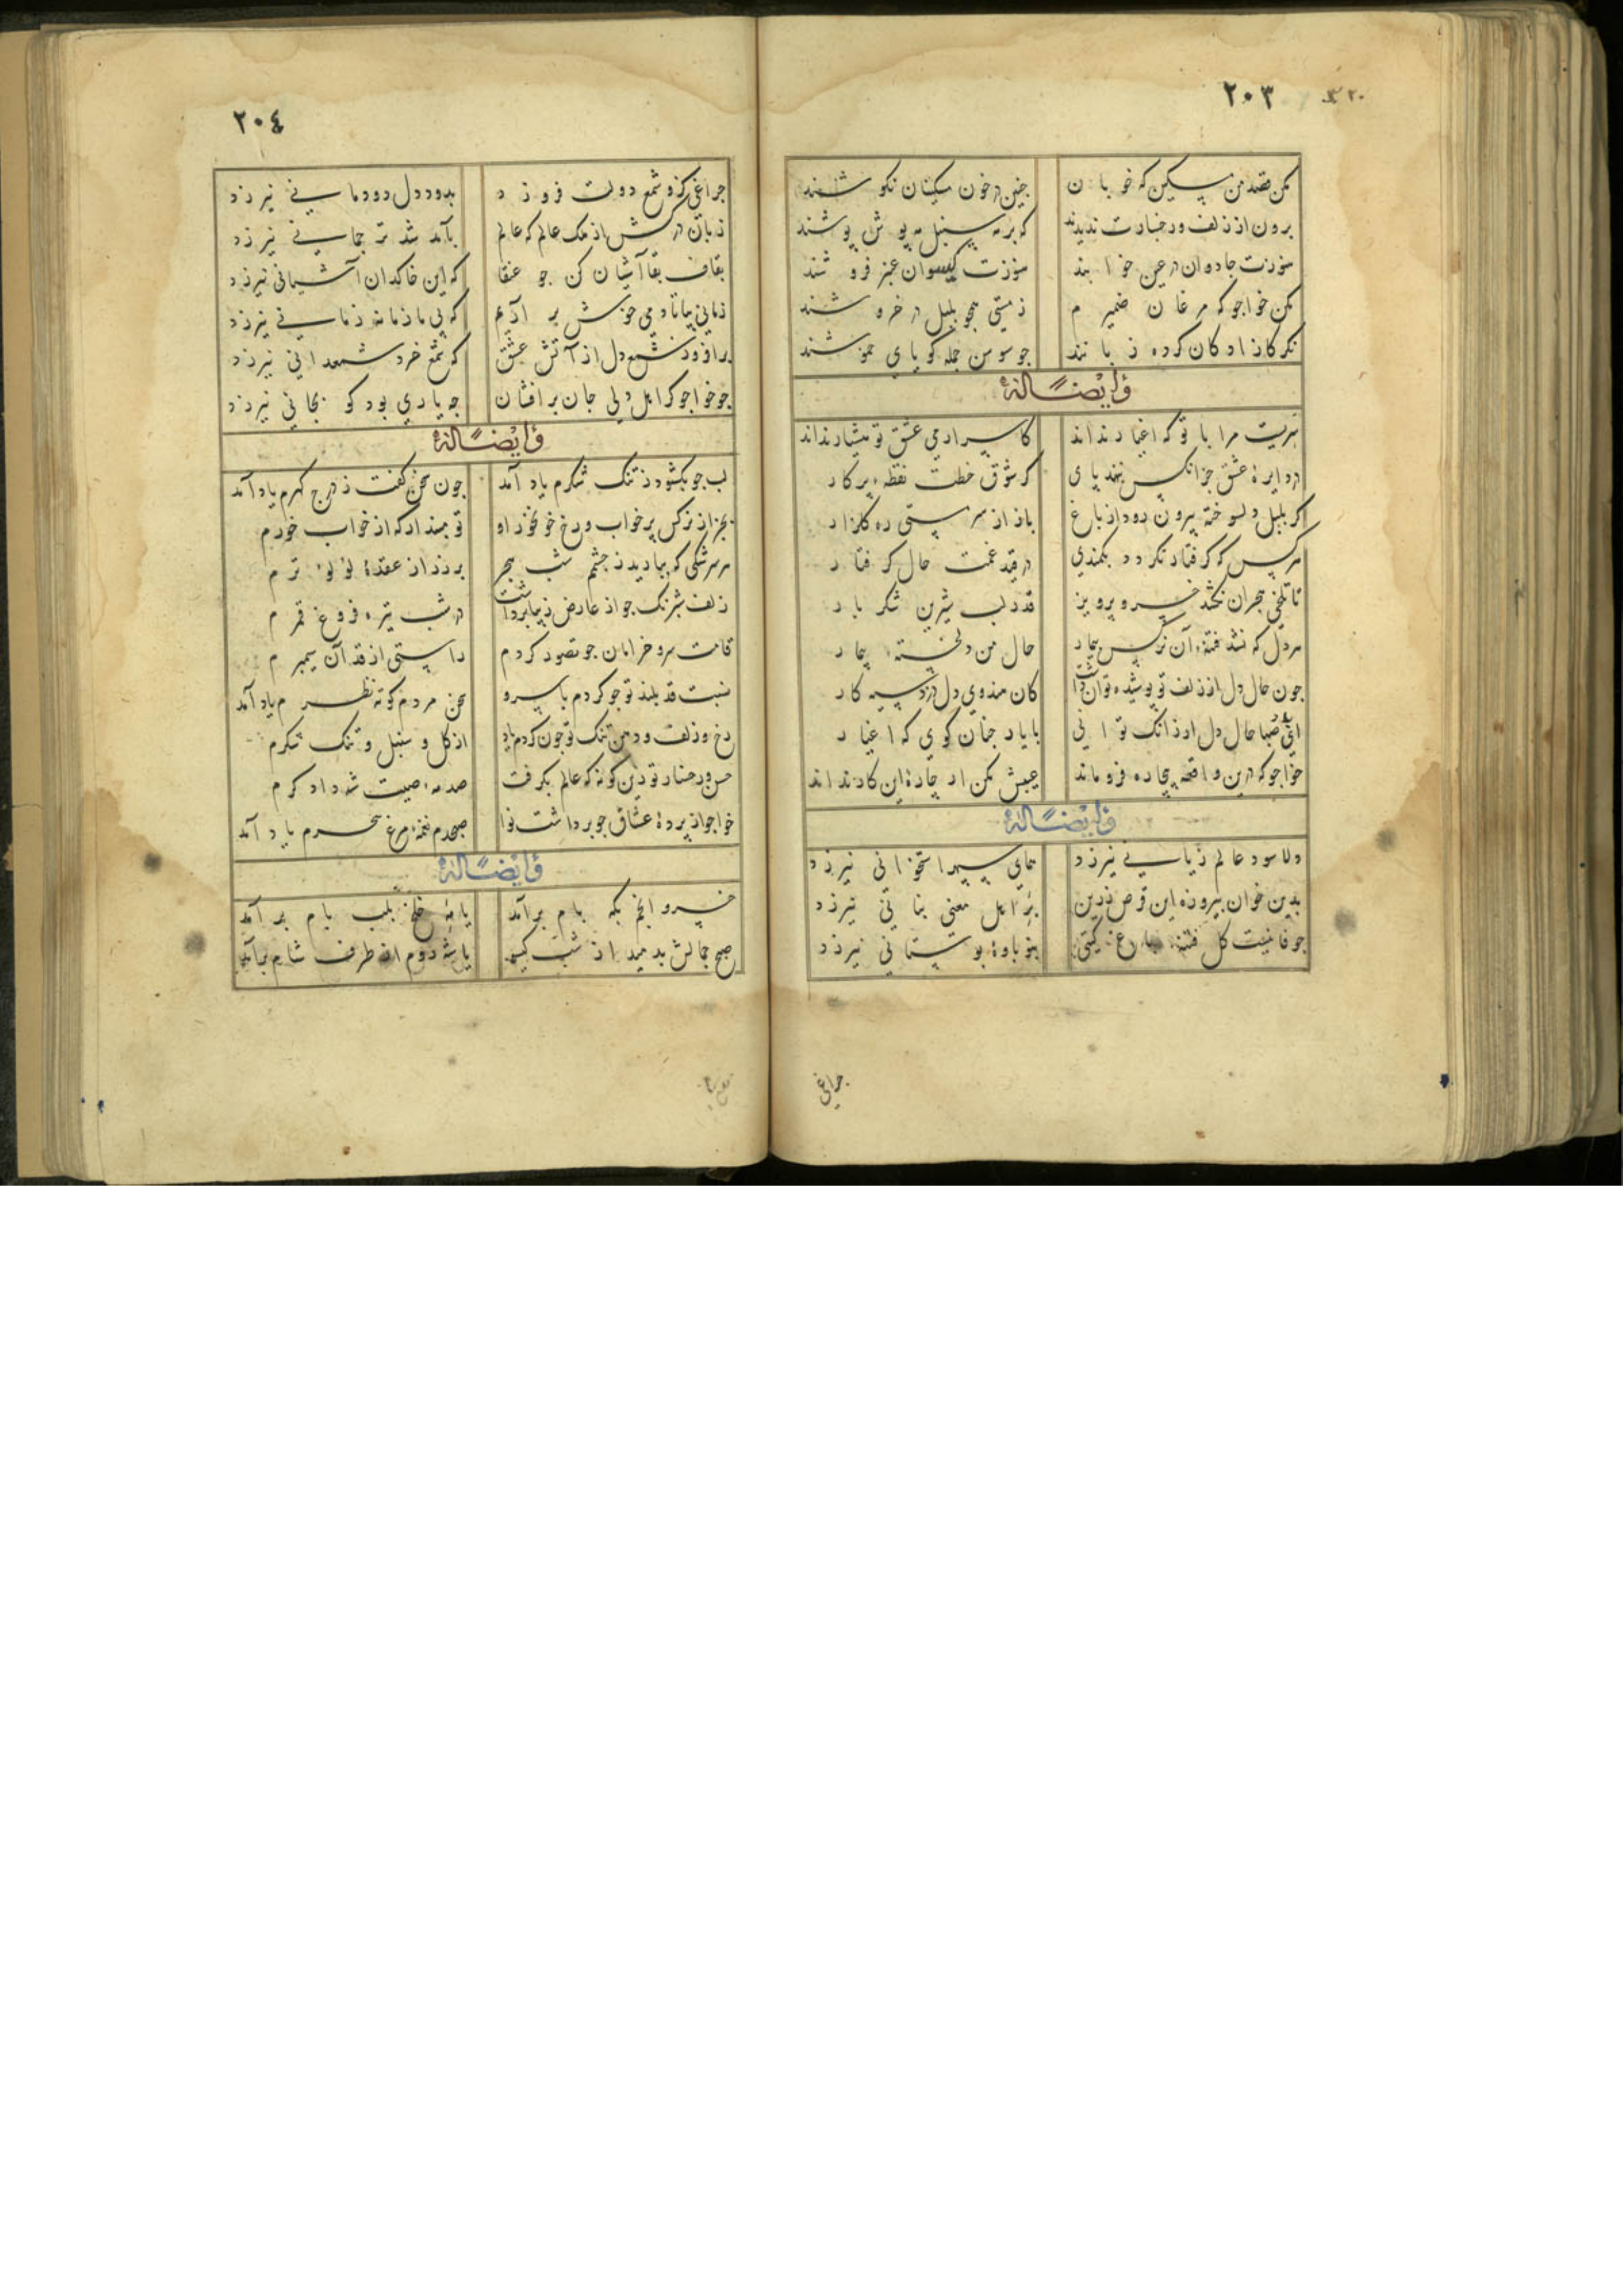 ٢٠٣
مکن قصد من مسکین که خوبان
چنین در خون مسکینان نکوشند
برون از زلف و رخسارت ندیدند
که بر مه سنبل مه پوش پوشند
هنوزت جادوان در عین خوابند
هنوزت کیسوان عنبر فروشند
مکن خواجو که مرغان ضمیرم
ز مستی همچو بلبل در خروشند
نکر کازادکان کر ده زبانند
جو سوسن جمله کویای خموشند
وایضاً له
سریست مرا با تو که اغیار نداند
کاسرار می عشق تو هشیار نداند
در دایرهٔ عشق جز انکس ننهد پای
کز شوق خطت نقطه ز پرکار
اکر بلبل دلسوخته بیرون رود از باغ
باز از سر مستی ره کلزار
هر کس که کرفتار نکردد بکمندی
در قید غمت حال کرفتار
تا تلخی هجران نکشد خسرو پرویز
قدر لب شیرین شکر بار
هر دل که نشد فتنهٔ آن نرکس بیمار
حال من دلخستهٔ بیمار
جون حال دل از زلف تو پوشیده توان داشت
کان هندوی دل دزد سیه کار
ای باد صبا حال دل ار زانک توانی
با یار جنان کوی که اغیار
خواجو که درین واقعه بیچاره فروماند
عیبش مکن ار چارهٔ این کار نداند
وایضاً له
دلا سود عالم زیانی نیرزد
همای سپهر استخوانی نیرزد
بدین خوان پیروزه این قرص زرین
بر اهل معنی بنانی نیرزد
جو فانیست کل فتنه باغ کیتی
بنوباوهٔ بوستانی نیرزد
چراغی
٢٠٤
چراغی کزو شمع دولت فروزد
بدود دل دودمانی نیرزد
زبان درکش از ملک عالم که عالم
بآمد شد ترجمانی نیرزد
بقاف بقا آشیان کن جو عنقا
که این خاکدان آشیانی نیرزد
زمانی بیا تا دمی خوش بر آریم
که بی ما زمانه زمانی نیرزد
برافروز شمع دل از آتش عشق
که شمع خرد شمعدانی نیرزد
جو خواجو کر اهل دلی جان برافشان
جه یاری بود کو بجانی نیرزد
وایضاً له
لب جو بکشود ز تنک شکرم یاد آمد
جون سخن کفت ز درج کهرم یاد آمد
بجز از نرکس پر خواب و رخ خو نخور او
تو مپندار که از خواب خورم
هر سرشکی که ببارید ز جشم شب هجر
بر زر از عقدهٔ لولوء ترم
زلف شبرنک جو از عارض زیبا برداشت
در شب تیره فروغ قمرم
قامت سرو خرامان جو تصور کردم
راستی از قد آن سیمبرم
نسبت قد بلند تو جو کردم با سرو
سخن مردم کوته نظرم یاد آمد
رخ و زلف و دهن تنک تو جون کردم یاد
از کل و سنبل و تنک شکرم
حسن رخسار تو زین کونه که عالم بکرفت
صدمهٔ صیت شه دادکرم
خواجو از پردهٔ عشاق جو برداشت نوا
صبحدم نغمهٔ مرغ سحرم یاد آمد
وایضاً له
خسرو انجم بکه بام برآمد
یا مه خلخ بلب بام برآمد
صبح جمالش بدمید از شب کیسو
یا شه روم از طرف شام برآمد